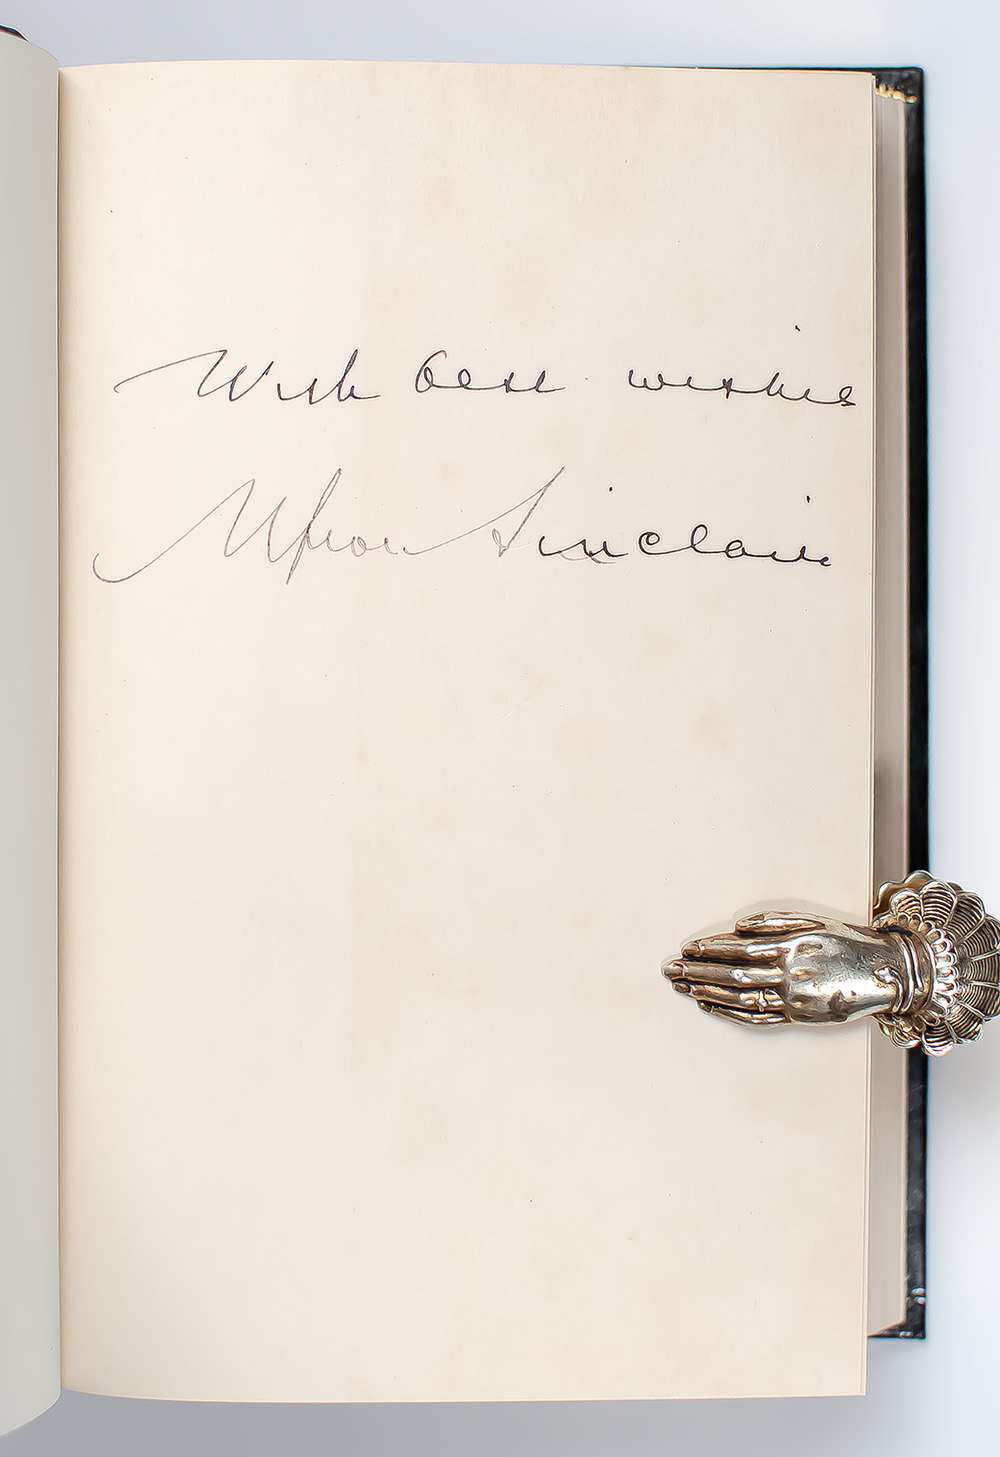 With best wishes
Upton Sinclair